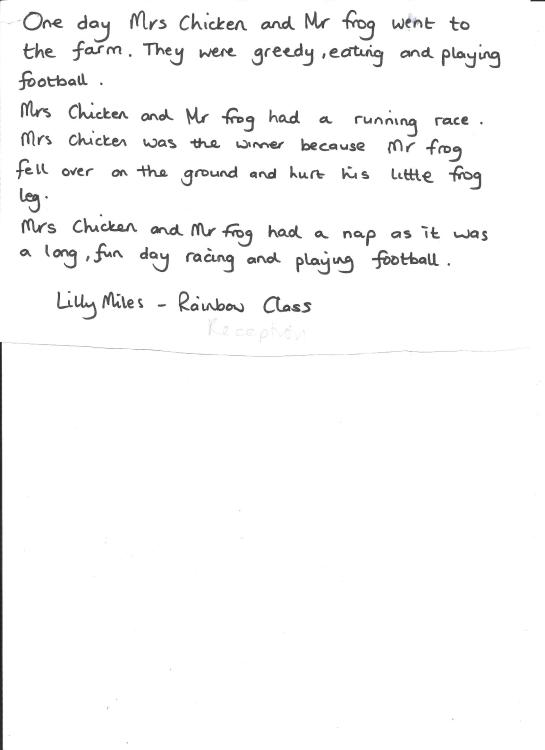 One day Mrs Chicken and Mr frog went to
the farm. They were greedy, eating and playing
football.
Mrs Chicken and Mr frog had a running race.
Mrs Chicken was the winner because Mr frog
fell over on the ground and hurt his little frog
leg.
Mrs Chicken and Mr frog had a nap as it was
a long, fun day racing and playing football.
Lilly Miles - Rainbow Class
Reception